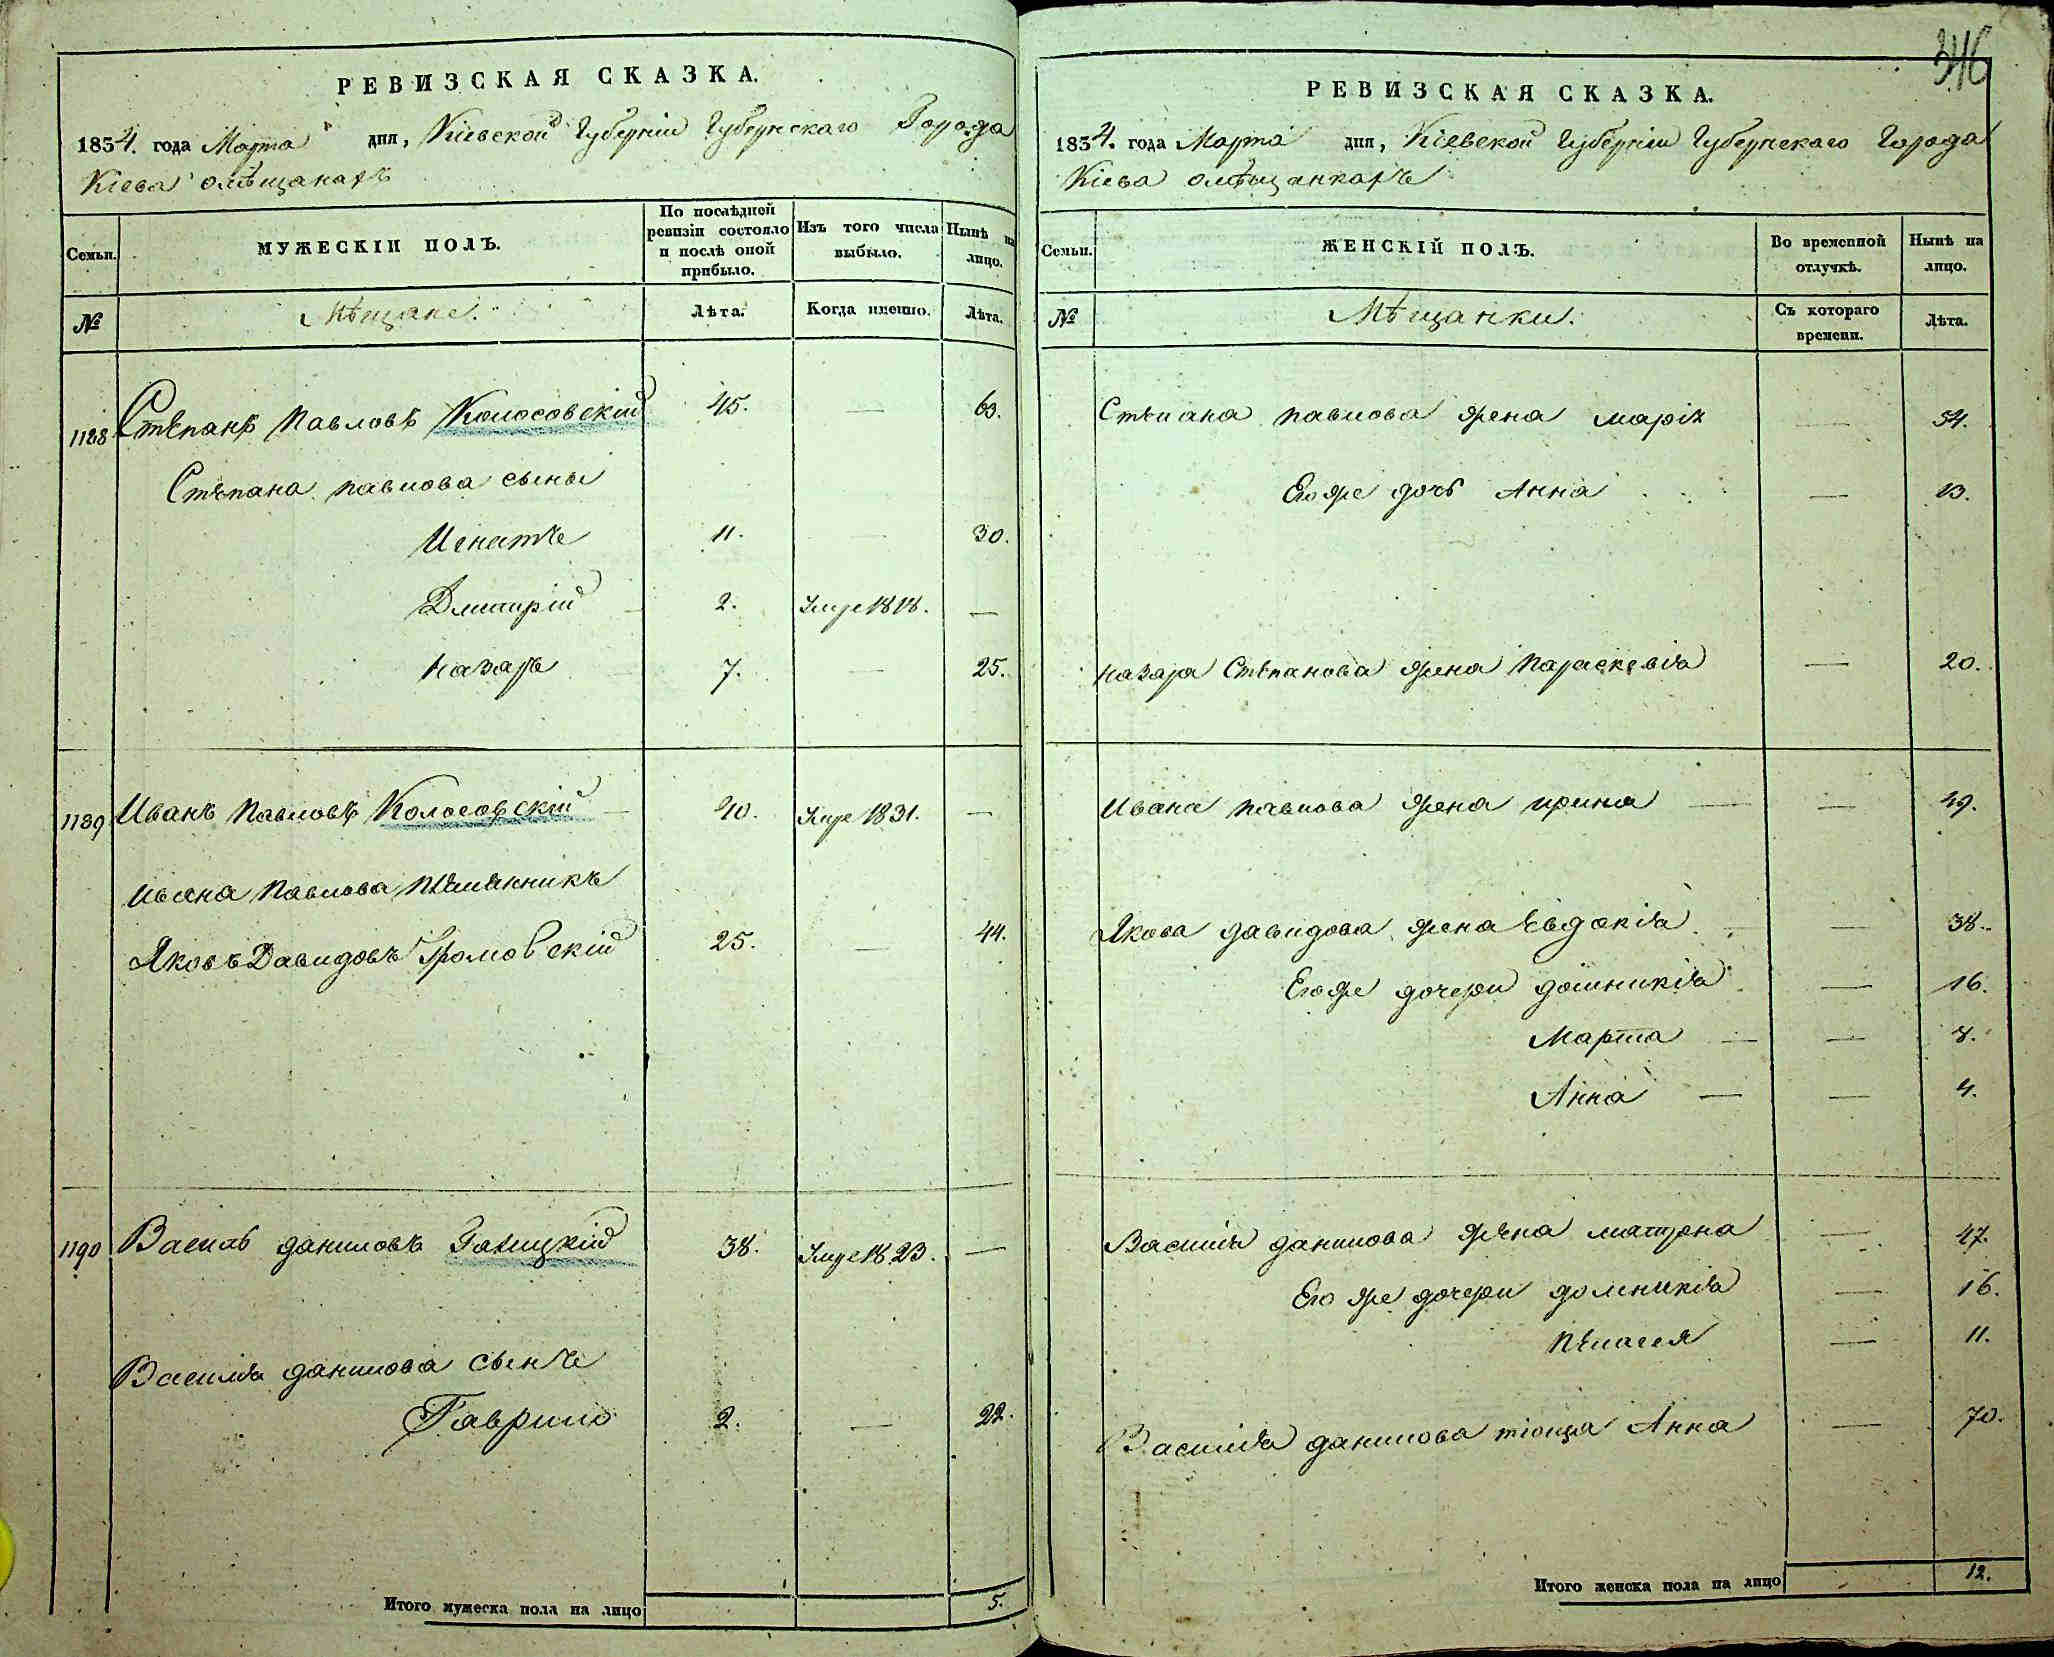 РЕВИЗСКАЯ СКАЗКА.
1834. года Марта дня, Кіевской Губерніи Губернскаго Города
Кіева омѣщанахъ
Семьи.
МУЖЕСКІЙ ПОЛЪ.
По послѣдней ревизіи состояло и послѣ оной прибыло.
Изъ того числа выбыло.
Нынѣ на лицо.
№
Мѣщане.
Лѣта.
Когда имешно.
Лѣта.
1188 Стѣпанъ Павловъ Колосовскій 45. — 63.
Стѣпана павлова сыны
Игнатъ 11. — 30.
Дмитрій 2. Умре 1818. —
Назаръ 7. — 25.
1189 Иванъ Павловъ Колосовскій — 40. Умре 1831. —
Ивана Павлова племянникъ
Яковъ Давидовъ Громовскій 25. — 44.
1190 Василь даниловъ Галицкій 38. Умре 1823. —
Василія данилова сынъ
Гаврило 2. — 22.
Итого мужеска пола на лицо 5.
346
РЕВИЗСКАЯ СКАЗКА.
1834. года Марта дня, Кіевской Губерніи Губернскаго Города
Кіева омѣщанкахъ
Семьи.
ЖЕНСКІЙ ПОЛЪ.
Во временной отлучкѣ.
Нынѣ на лицо.
№
Мѣщанки.
Съ котораго времени.
Лѣта.
Стѣпана павлова жена марія — 54.
Егоже дочь Анна — 13.
Назара Стѣпанова жена Параскевія — 20.
Ивана павлова жена ирина — — 49.
Якова давидова жена Евдокія. — — 38.
Егоже дочери домникія — 16.
Марта — — 8.
Анна — — 4.
Василія данилова жена матрона — 47.
Его же дочери доменикія — 16.
Пелагея — 11.
Василія данилова тіоща Анна — 70.
Итого женска пола на лицо 12.